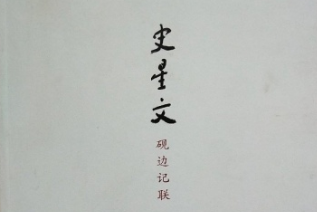 史星文
砚边记联